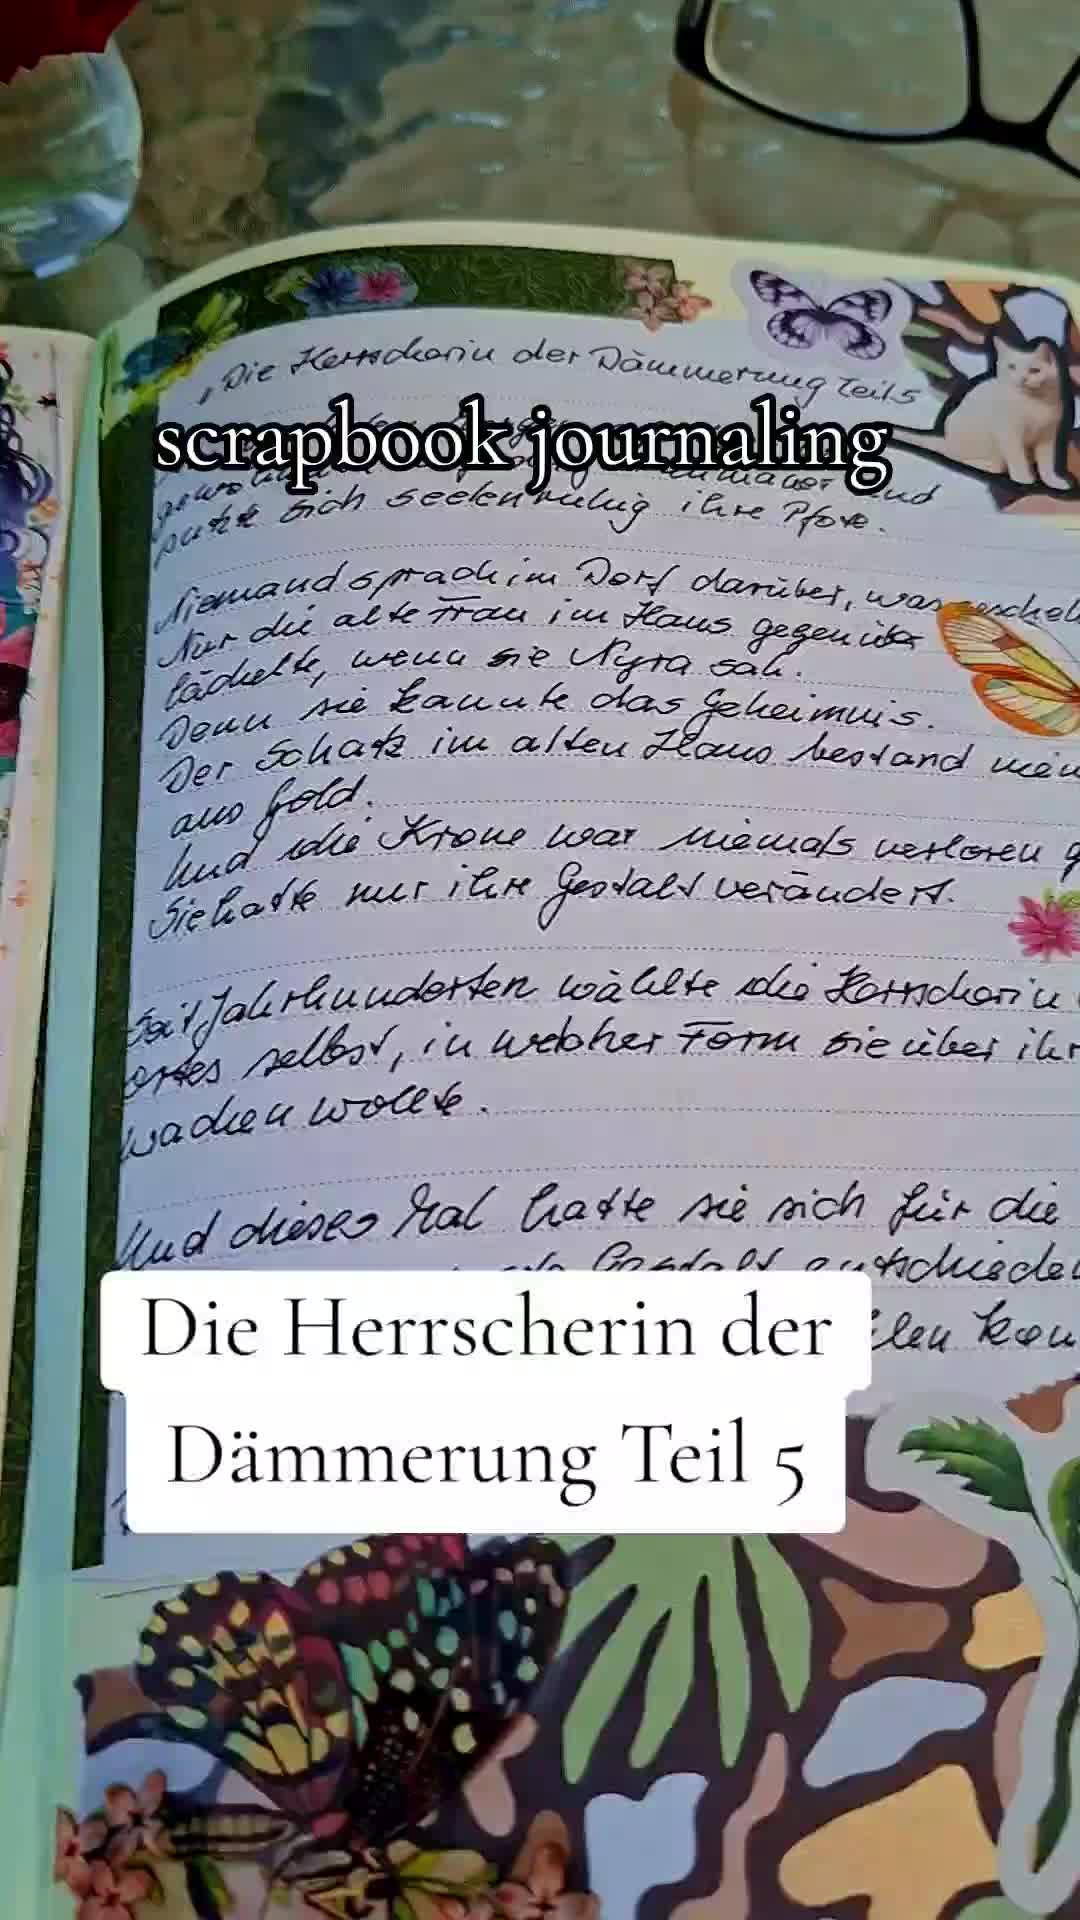 „Die Herrscherin der Dämmerung Teil 5
scrapbook journaling
und
putzte sich seelenruhig ihre Pfote.
Niemand sprach im Dorf darüber, was
Nur die alte Frau im Haus gegenüber
lächelte, wenn sie Nyra sah.
Denn sie kannte das Geheimnis.
Der Schatz im alten Haus bestand
aus Gold.
Und die Krone war niemals verloren
Sie hatte nur ihre Gestalt verändert.
Seit Jahrhunderten wählte die Herrscherin
ortes selbst, in welcher Form sie über ihr
wachen wollte.
Und dieses Mal hatte sie sich für die
Gestalt entschieden
Die Herrscherin der
Dämmerung Teil 5